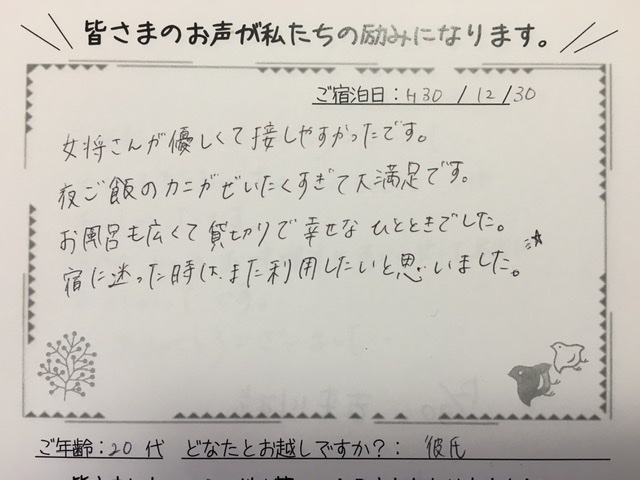 皆さまのお声が私たちの励みになります。
ご宿泊日：H30/12/30
女将さんが優しくて接しやすかったです。
夜ご飯のカニがぜいたくすぎて大満足です。
お風呂も広くて貸切りで幸せなひとときでした。
宿に迷った時は、また利用したいと思いました。☆
ご年齢：20代 どなたとお越しですか？：彼氏